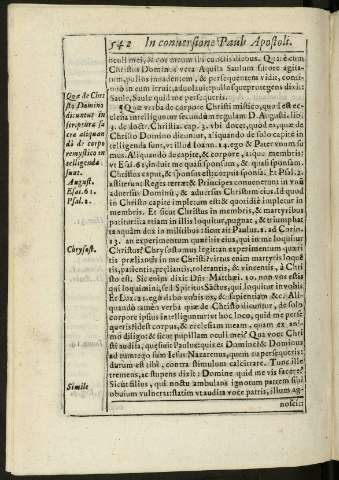 542 In conuersione Pauli Apostoli.
oculi mei, & cor meum ibi cunctis diebus. Quare cum
Christus Dominus vera Aquila Saulum furore agita-
tum, pullos inuadentem, & persequentem vidit, conti-
nuò in eum irruit, aduolat: pullosque protegens dixit:
Saule, Saule quid me persequeris.
Quæ de Chri
sto Domino
dicuntur in
scriptura sa
cra aliquan
dò de corpo
re mystico in
telligenda
sunt.
August.
Esai. 61.
Psal. 2.
Quæ verba de corpore Christi mistico, quod est ec-
clesia intelliguntur secundùm regulam D. Augusti. libr.
3. de doctr. Christia. cap. 31. vbi docet, quod ea, quæ de
Christo Domino dicuntur, aliquando de solo capite in
telligenda sunt, vt illud Ioann. 14. ego & Pater vnum su
mus. Aliquando de capite, & corpore, atque membris:
vt Esai. 61. induit me quasi sponsum, & quasi sponsam,
Christus caput, & sponsus est: corpus sponsa. Et Psal. 2.
astiterunt Reges terræ & Principes conuenerunt in vnũ
aduersus Dominũ, & aduersus Christum eius. id quod
in Christo capite impletum est: & quotidiè impletur in
membris. Et sicut Christus in membris, & martyribus
patitur: ita etiam in illis loquitur, pugnat, & triumphat
tanquàm dux in militibus: sicut ait Paulus. 2. ad Corin.
13. an experimentum quæritis eius, qui in me loquitur
Chrysost.
Christus? Chrysostomus legit: an experimentum quæri-
tis præliantis in me Christi? virtus enim martyris loquẽ
tis, patientis, præliantis, tolerantis, & vincentis, à Chri
sto est. Sic enim dixit Dñs Matthæi. 10. non vos estis
qui loquimini, sed Spiritus Sãctus, qui loquitur in vobis
Et Luc. 21. ego dabo vobis os, & sapientiam & c. Ali-
quando tamen verba quæ de Christo dicuntur, de solo
corpore ipsius intelliguntur: vt hoc loco, quid me perse
queris? idest corpus, & ecclesiam meam, quam ex ani-
mo diligo: & sicut pupillam oculi mei? Qua voce Chri
sti audita, quæsiuit Paulus: quis es Domine? & Dominus
ad eum: ego sum Iesus Nazarenus, quem tu persequeris:
durum est tibi, contra stimulum calcitrare. Tunc ille
tremens, ac stupens dixit: Domine quid me vis facere?
Simile
Sicut filius, qui noctu ambulans ignotum patrem sibi
obuium vulnerat: statim vt audita voce patris, illum ag-
nosci: